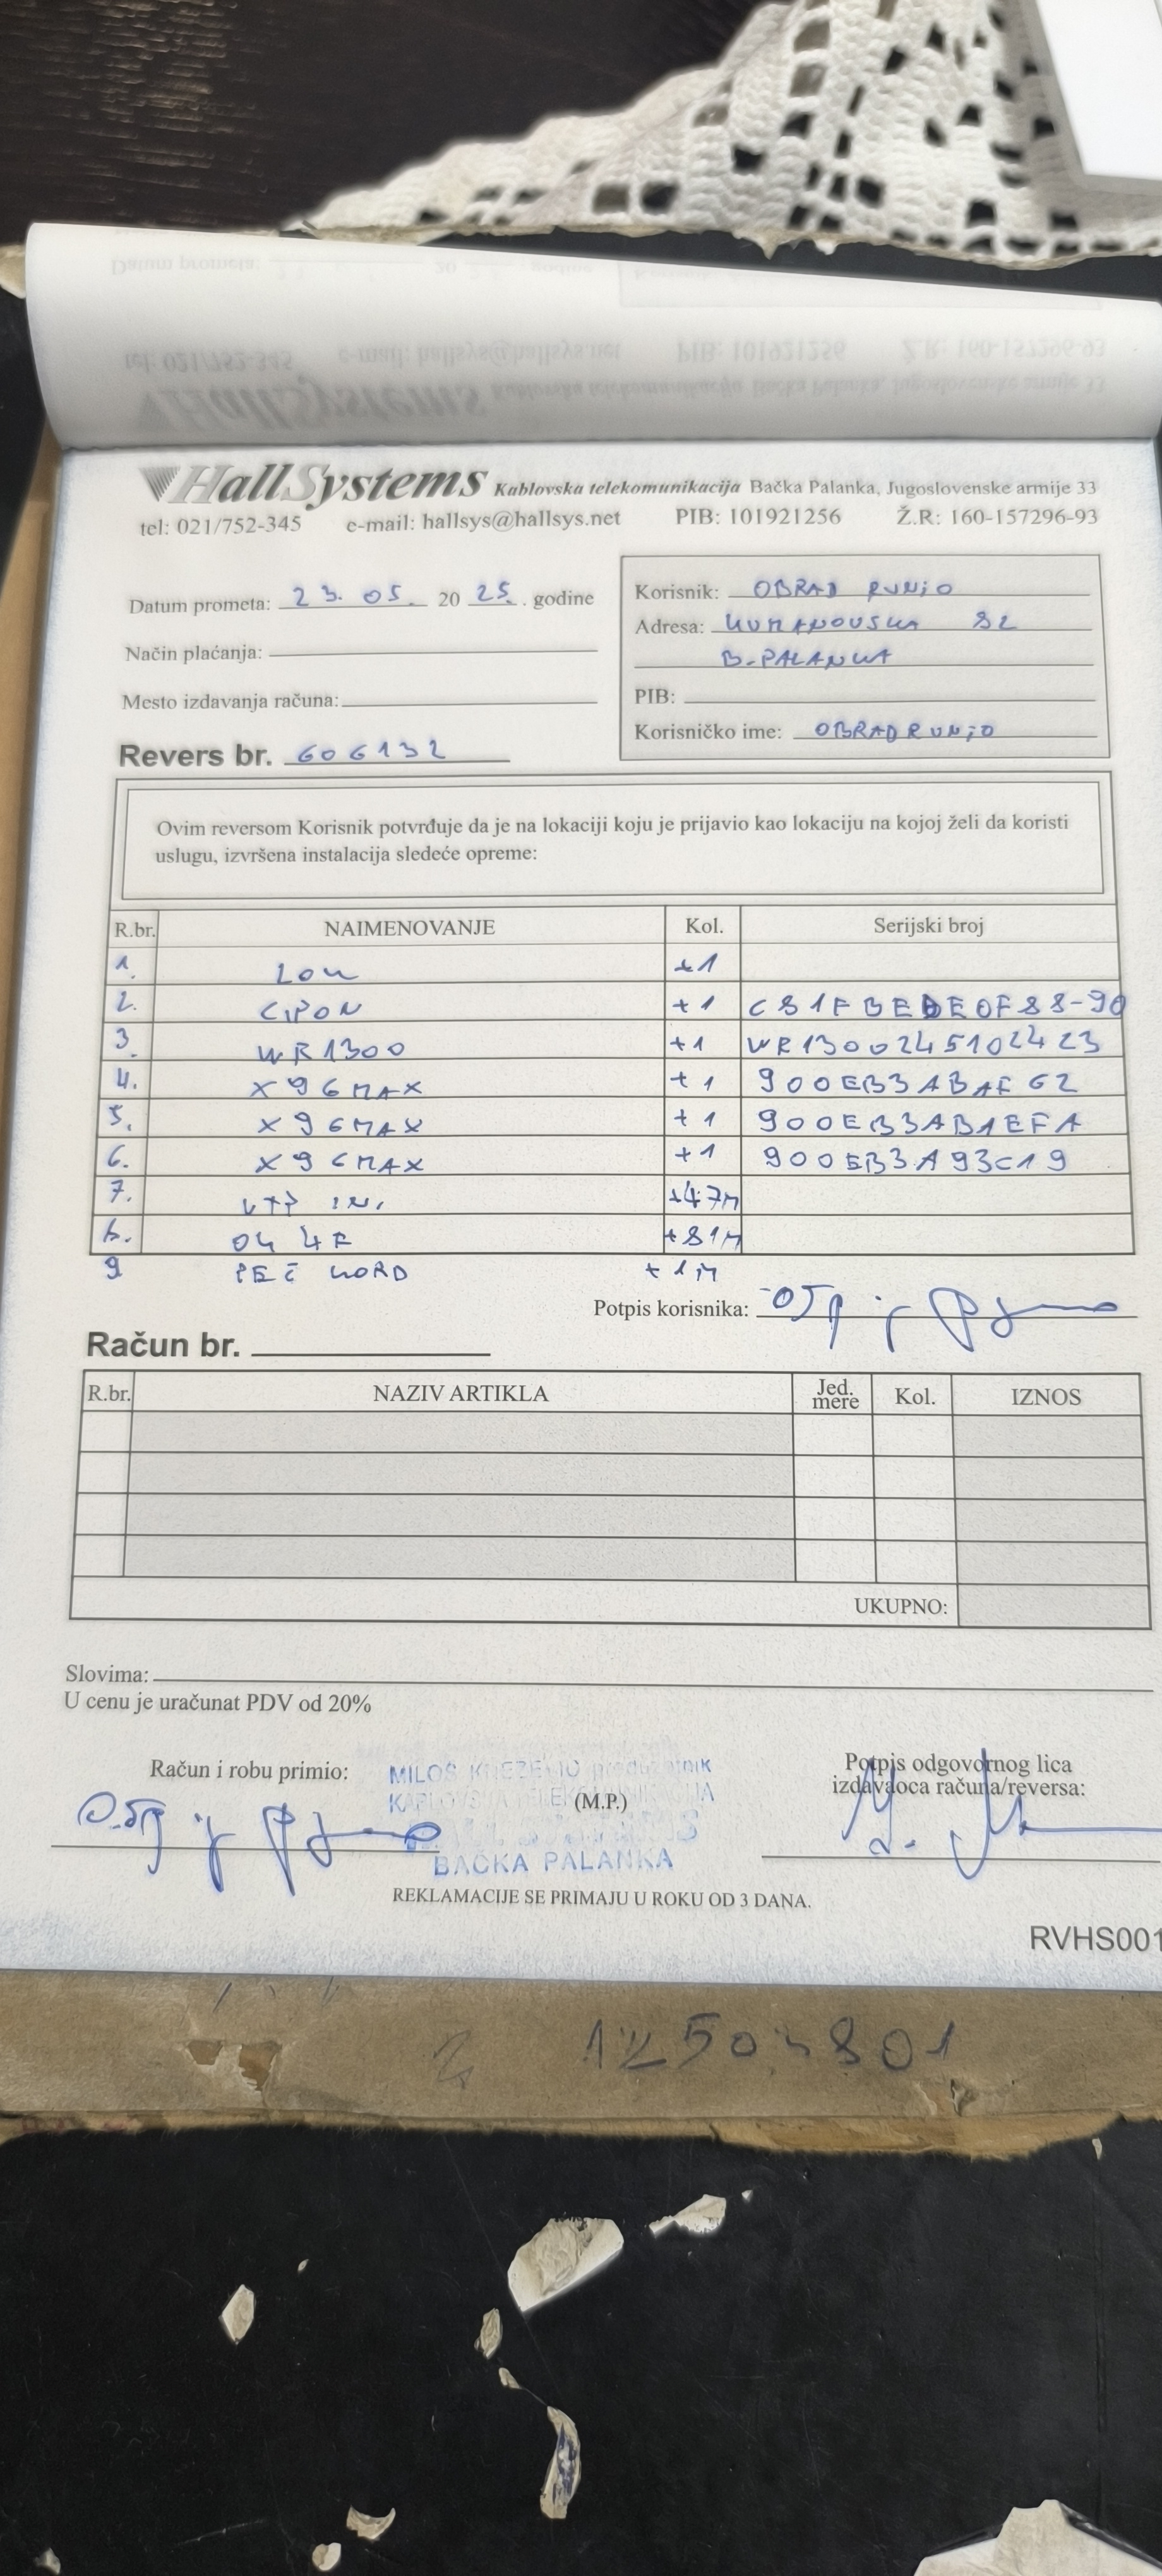 HallSystems Kablovska telekomunikacija Bačka Palanka, Jugoslovenske armije 33
tel: 021/752-345 e-mail: hallsys@hallsys.net PIB: 101921256 Ž.R: 160-157296-93
Datum prometa: 23. 05. 20 25. godine
Način plaćanja:
Mesto izdavanja računa:
Revers br. 606132
Korisnik: OBRAD RUNIO
Adresa: KUMANOVSKA 82
B. PALANKA
PIB:
Korisničko ime: OBRADRUNIO
Ovim reversom Korisnik potvrđuje da je na lokaciji koju je prijavio kao lokaciju na kojoj želi da koristi
uslugu, izvršena instalacija sledeće opreme:
R.br. NAIMENOVANJE Kol. Serijski broj
1. +1
2. +1
3. WR1300 +1 WR1300245102423
4. X96MAX +1 900EB3ABAF62
5. X96MAX +1 900EB3AB1EFA
6. X96MAX +1 900EB3A93C19
7. UTP +47M
8. OK 4F +81M
9 PEČ KORD +1M
Potpis korisnika:
Račun br.
R.br. NAZIV ARTIKLA Jed. mere Kol. IZNOS
UKUPNO:
Slovima:
U cenu je uračunat PDV od 20%
Račun i robu primio:
MILOŠ KNEŽEVIĆ preduzetnik
KABLOVSKA TELEKOMUNIKACIJA
(M.P.)
BAČKA PALANKA
Potpis odgovornog lica
izdavaoca računa/reversa:
REKLAMACIJE SE PRIMAJU U ROKU OD 3 DANA.
RVHS001